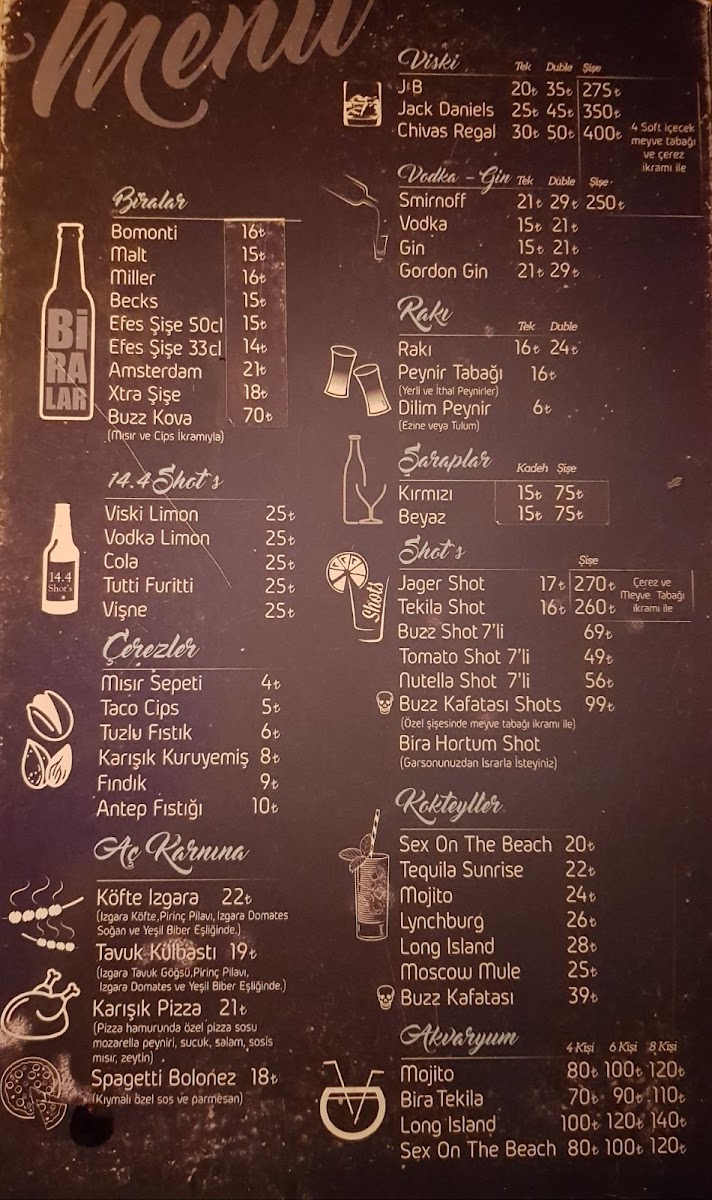 Menü
Biralar
Bomonti 16₺
Malt 15₺
Miller 16₺
Becks 15₺
Efes Şişe 50cl 15₺
Efes Şişe 33cl 14₺
Amsterdam 21₺
Xtra Şişe 18₺
Buzz Kova 70₺
(Mısır ve Cips İkramıyla)
Bİ
RA
LAR
14.4 Shot's
Viski Limon 25₺
Vodka Limon 25₺
Cola 25₺
Tutti Furitti 25₺
Vişne 25₺
14.4
Shot's
Çerezler
Mısır Sepeti 4₺
Taco Cips 5₺
Tuzlu Fıstık 6₺
Karışık Kuruyemiş 8₺
Fındık 9₺
Antep Fıstığı 10₺
Aç Karnına
Köfte Izgara 22₺
(Izgara Köfte,Pirinç Pilavı, Izgara Domates
Soğan ve Yeşil Biber Eşliğinde.)
Tavuk Külbastı 19₺
(Izgara Tavuk Göğsü,Pirinç Pilavı,
Izgara Domates ve Yeşil Biber Eşliğinde.)
Karışık Pizza 21₺
(Pizza hamurunda özel pizza sosu
mozarella peyniri, sucuk, salam, sosis
mısır, zeytin)
Spagetti Bolonez 18₺
(Kıymalı özel sos ve parmesan)
Viski Tek Duble Şişe
J&B 20₺ 35₺ 275₺
Jack Daniels 25₺ 45₺ 350₺
Chivas Regal 30₺ 50₺ 400₺
4 Soft içecek
meyve tabağı
ve çerez
ikramı ile
Vodka - Gin Tek Duble Şişe
Smirnoff 21₺ 29₺ 250₺
Vodka 15₺ 21₺
Gin 15₺ 21₺
Gordon Gin 21₺ 29₺
Rakı Tek Duble
Rakı 16₺ 24₺
Peynir Tabağı 16₺
(Yerli ve İthal Peynirler)
Dilim Peynir 6₺
(Ezine veya Tulum)
Şaraplar Kadeh Şişe
Kırmızı 15₺ 75₺
Beyaz 15₺ 75₺
Shot's Şişe
Jager Shot 17₺ 270₺
Tekila Shot 16₺ 260₺
Çerez ve
Meyve Tabağı
ikramı ile
Buzz Shot 7'li 69₺
Tomato Shot 7'li 49₺
Nutella Shot 7'li 56₺
Buzz Kafatası Shots 99₺
(Özel şişesinde meyve tabağı ikramı ile)
Bira Hortum Shot
(Garsonunuzdan Israrla İsteyiniz)
Shots
Kokteyller
Sex On The Beach 20₺
Tequila Sunrise 22₺
Mojito 24₺
Lynchburg 26₺
Long Island 28₺
Moscow Mule 25₺
Buzz Kafatası 39₺
Akvaryum 4 Kişi 6 Kişi 8 Kişi
Mojito 80₺ 100₺ 120₺
Bira Tekila 70₺ 90₺ 110₺
Long Island 100₺ 120₺ 140₺
Sex On The Beach 80₺ 100₺ 120₺